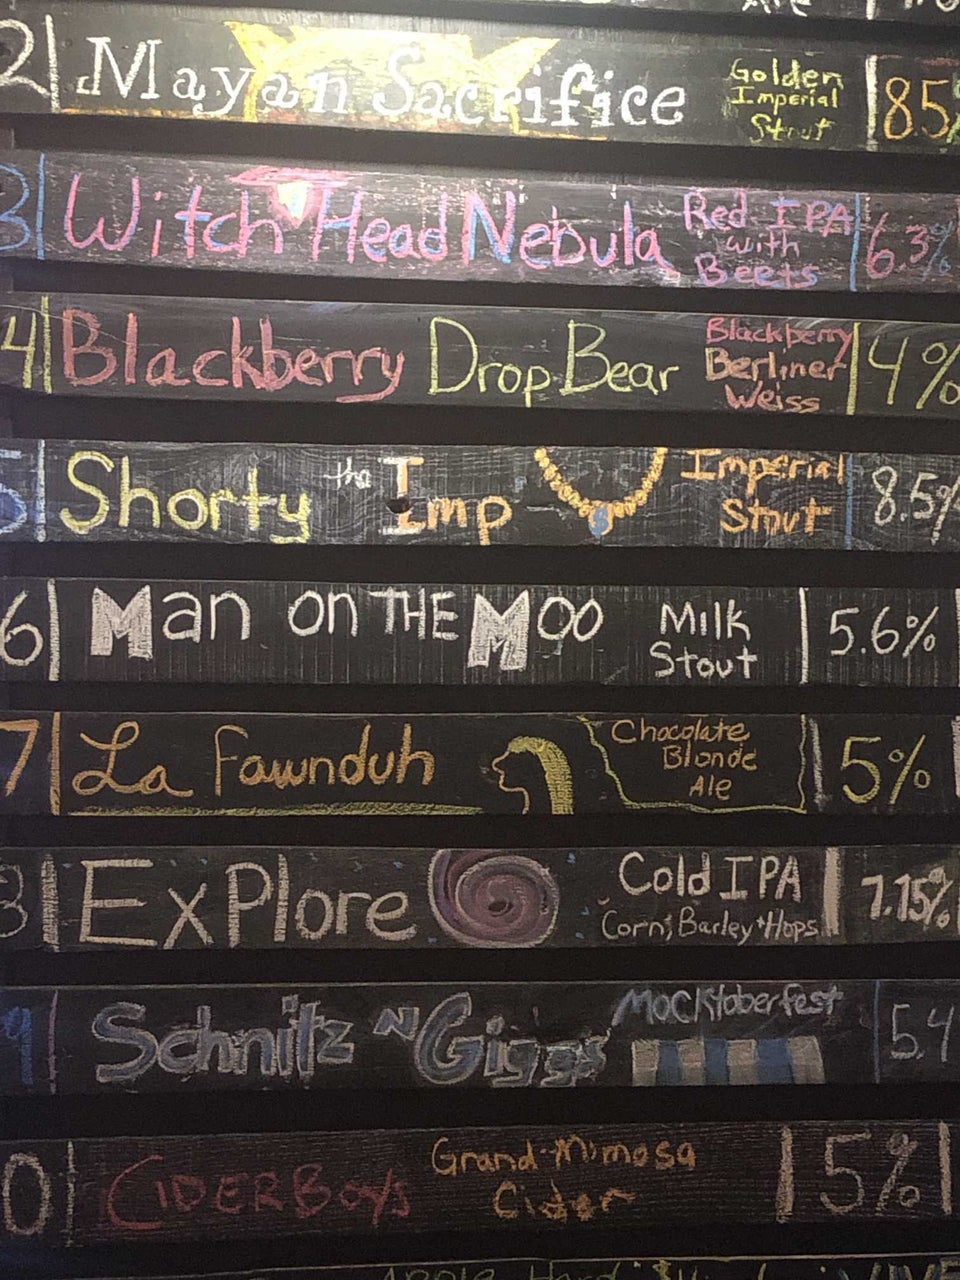 Ale
2 Mayan Sacrifice Golden Imperial Stout 8.5%
3 Witch Head Nebula Red IPA with Beets 6.3%
4 Blackberry Drop Bear Blackberry Berliner Weiss 4%
5 Shorty the Imp Imperial Stout 8.5%
6 Man on THE MOO Milk Stout 5.6%
7 La Fawnduh Chocolate Blonde Ale 5%
8 ExPlore Cold IPA Corn, Barley + Hops 7.15%
9 Schnitz N Giggs MOCKtoberfest 5.4
0 CIDERBOYS Grand Mimosa Cider 5%
Apple Hard